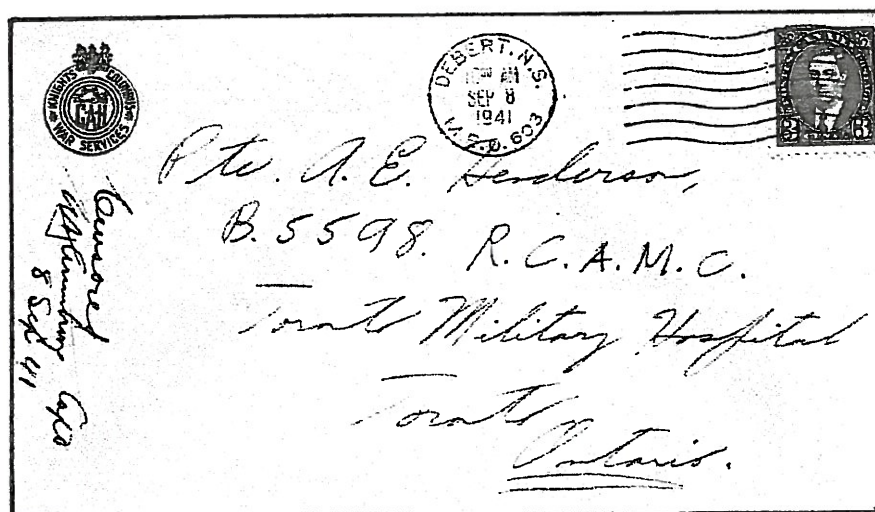 KNIGHTS OF COLUMBUS
CAH
WAR SERVICES
DEBERT. N.S.
AM
SEP 8
1941
M.P.O. 603
CANADA
3 3
Pte. A. E. Henderson,
B. 5598. R. C. A. M. C.
Toronto Military Hospital
Toronto
Ontario.
Censored
Capt
8 Sept 41